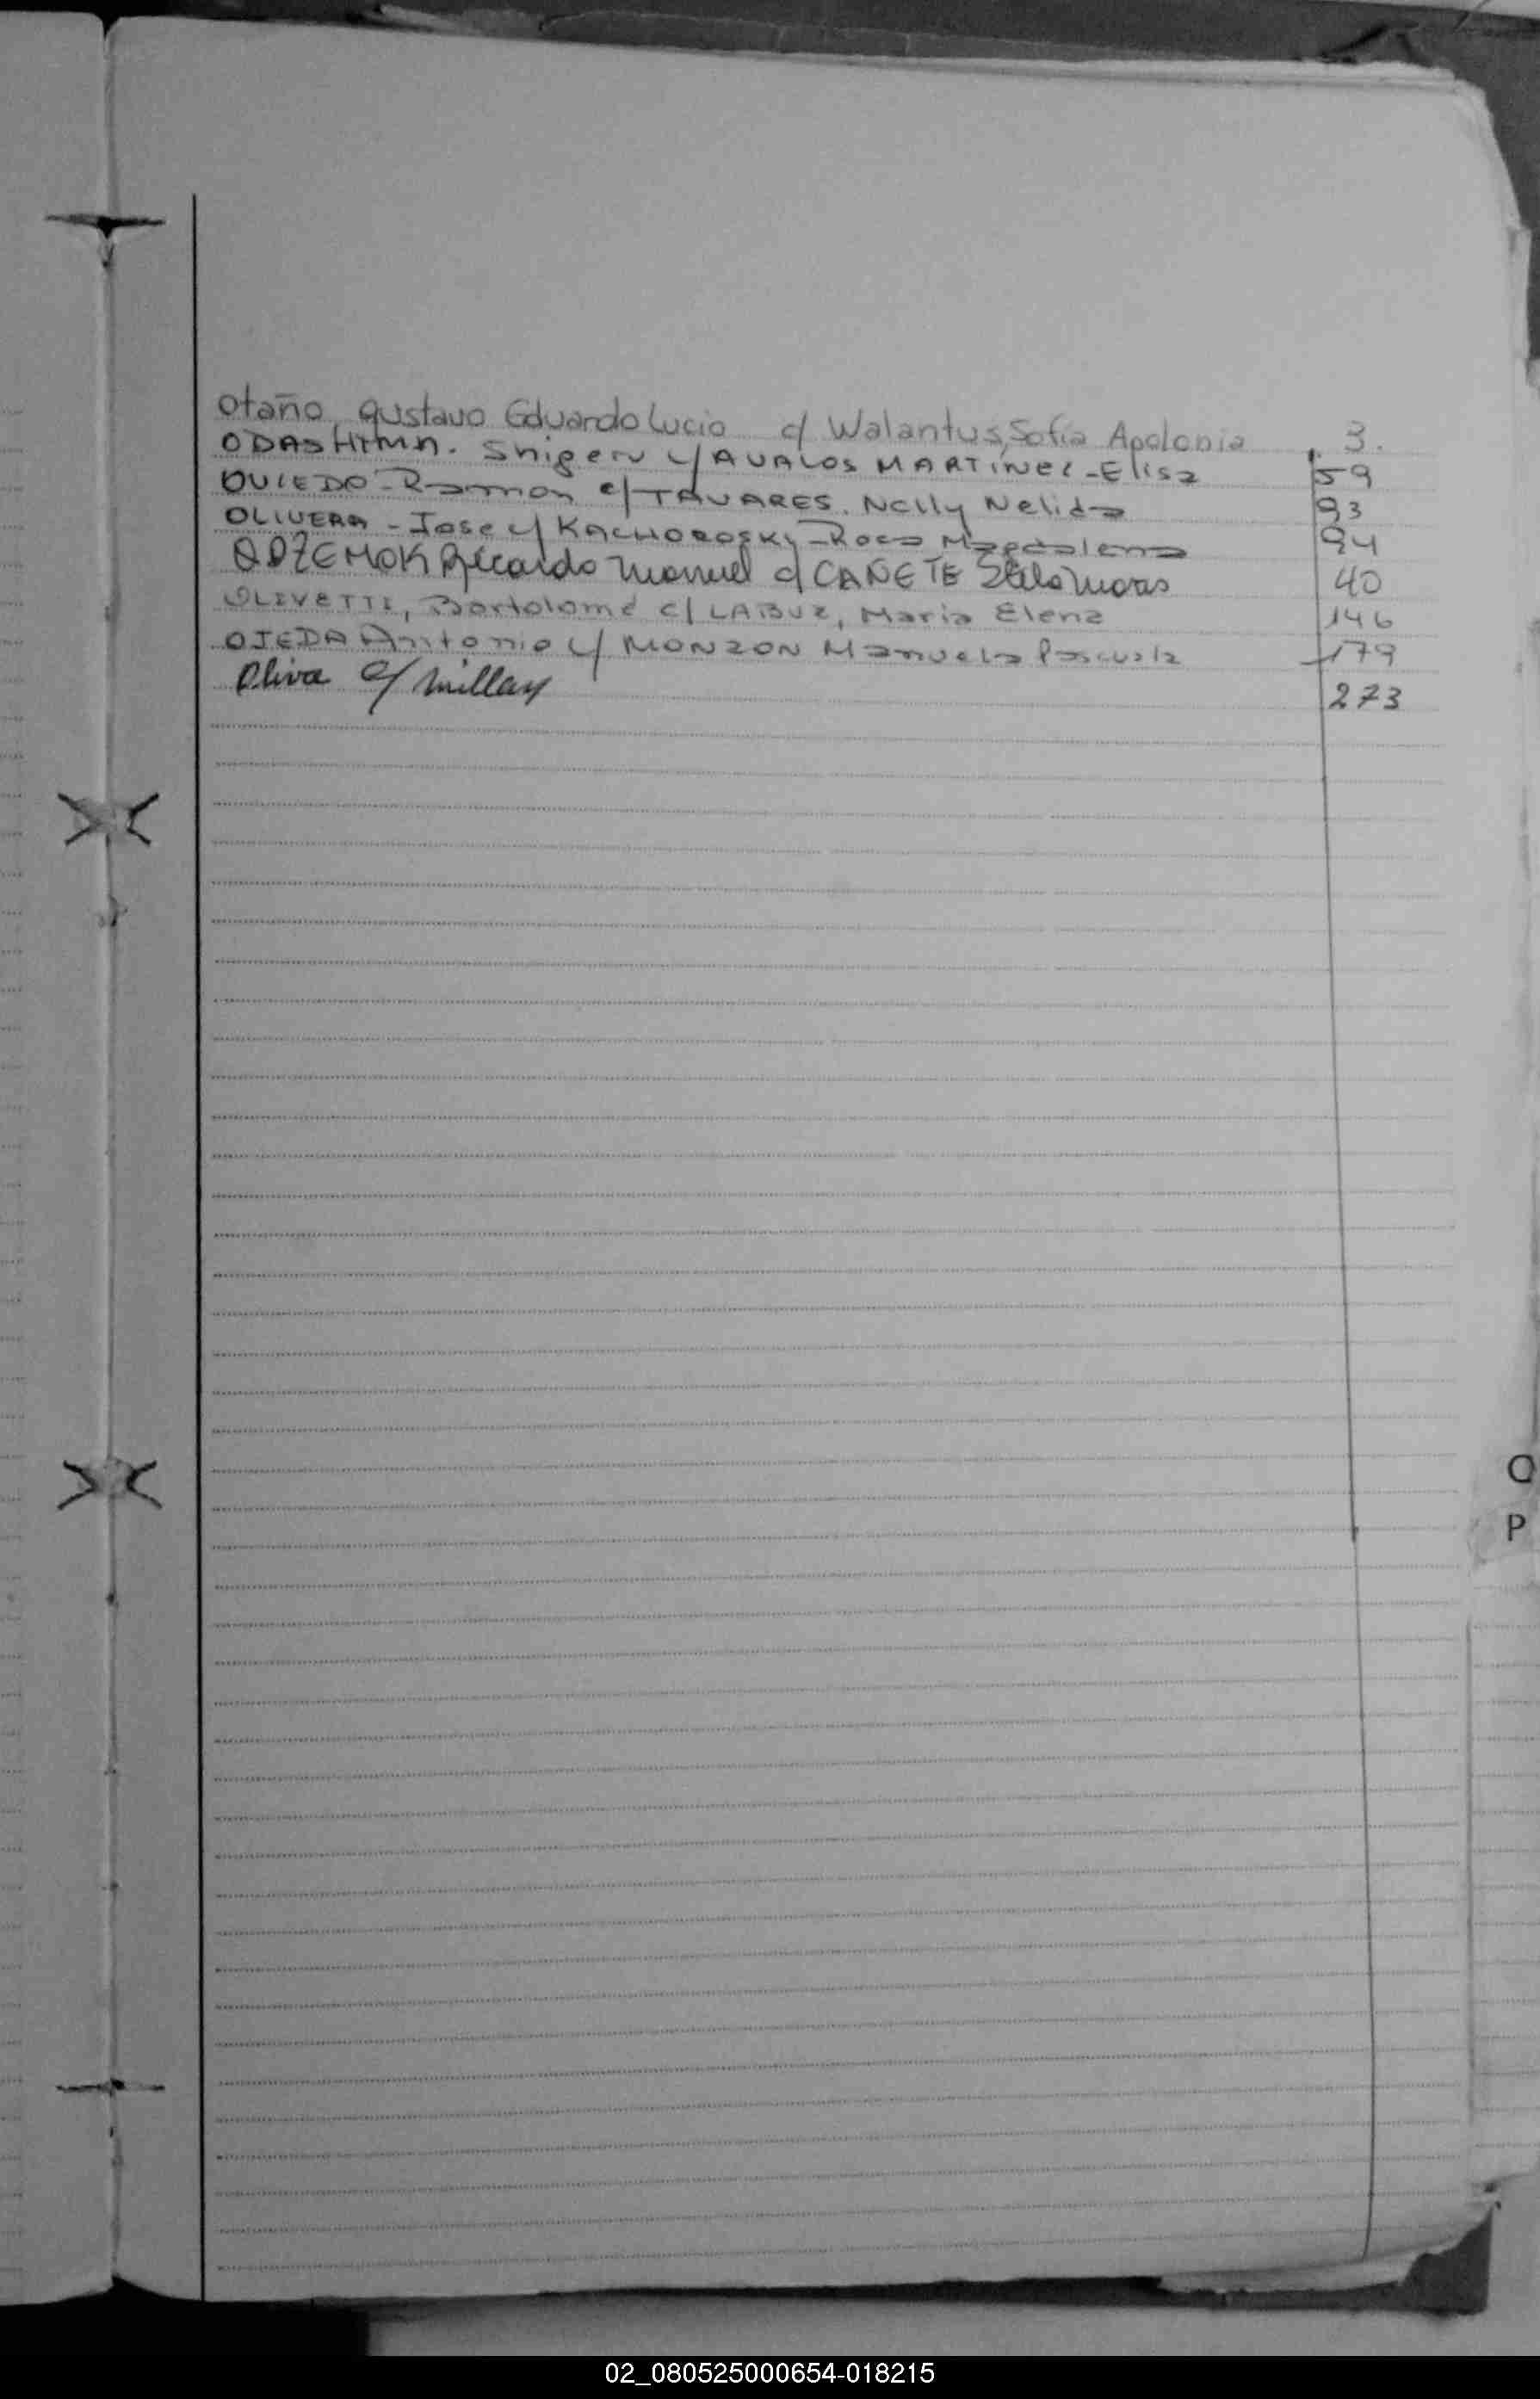 Otaño, Gustavo Eduardo Lucio c/ Walantus, Sofía Apolonia 3.
ODASHIMA. Shigeru c/ AVALOS MARTINEZ - Elisa 59
OVIEDO - Ramon c/ TAVARES. Nelly Nelida 93
OLIVERA - Jose c/ KACHOROSKY - Rosa Magdalena 94
ODZEMOK Ricardo Manuel c/ CAÑETE 40
OLIVETTI, Bartolomé c/ LABUZ, Maria Elena 146
OJEDA Antonio c/ MONZON Manuela Pascuala 179
Oliva c/ Millay 273
O
P
02_080525000654-018215